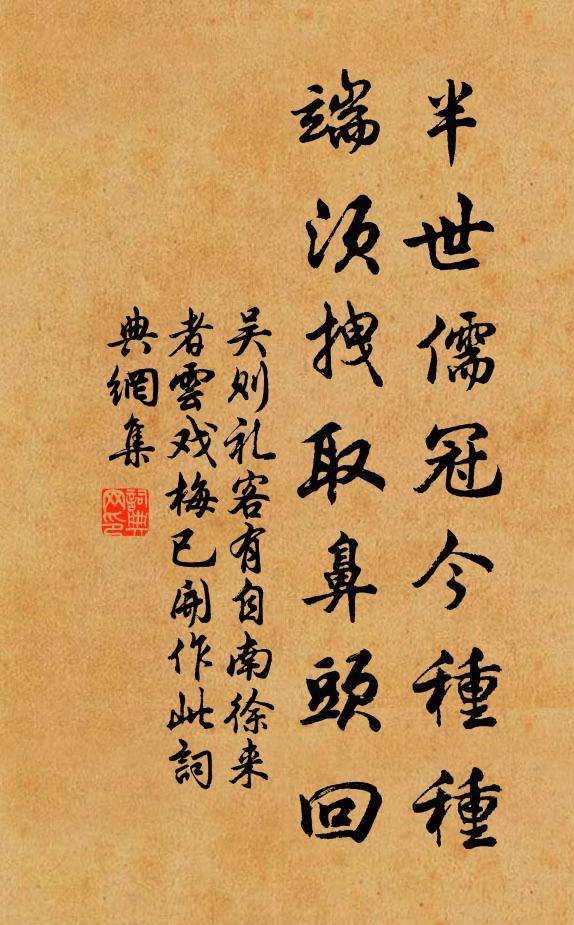 半世儒冠今種種
端須拽取鼻頭回
吴则礼客有自南徐来
者雲戏梅已開作此詞
典網集
詞典網印